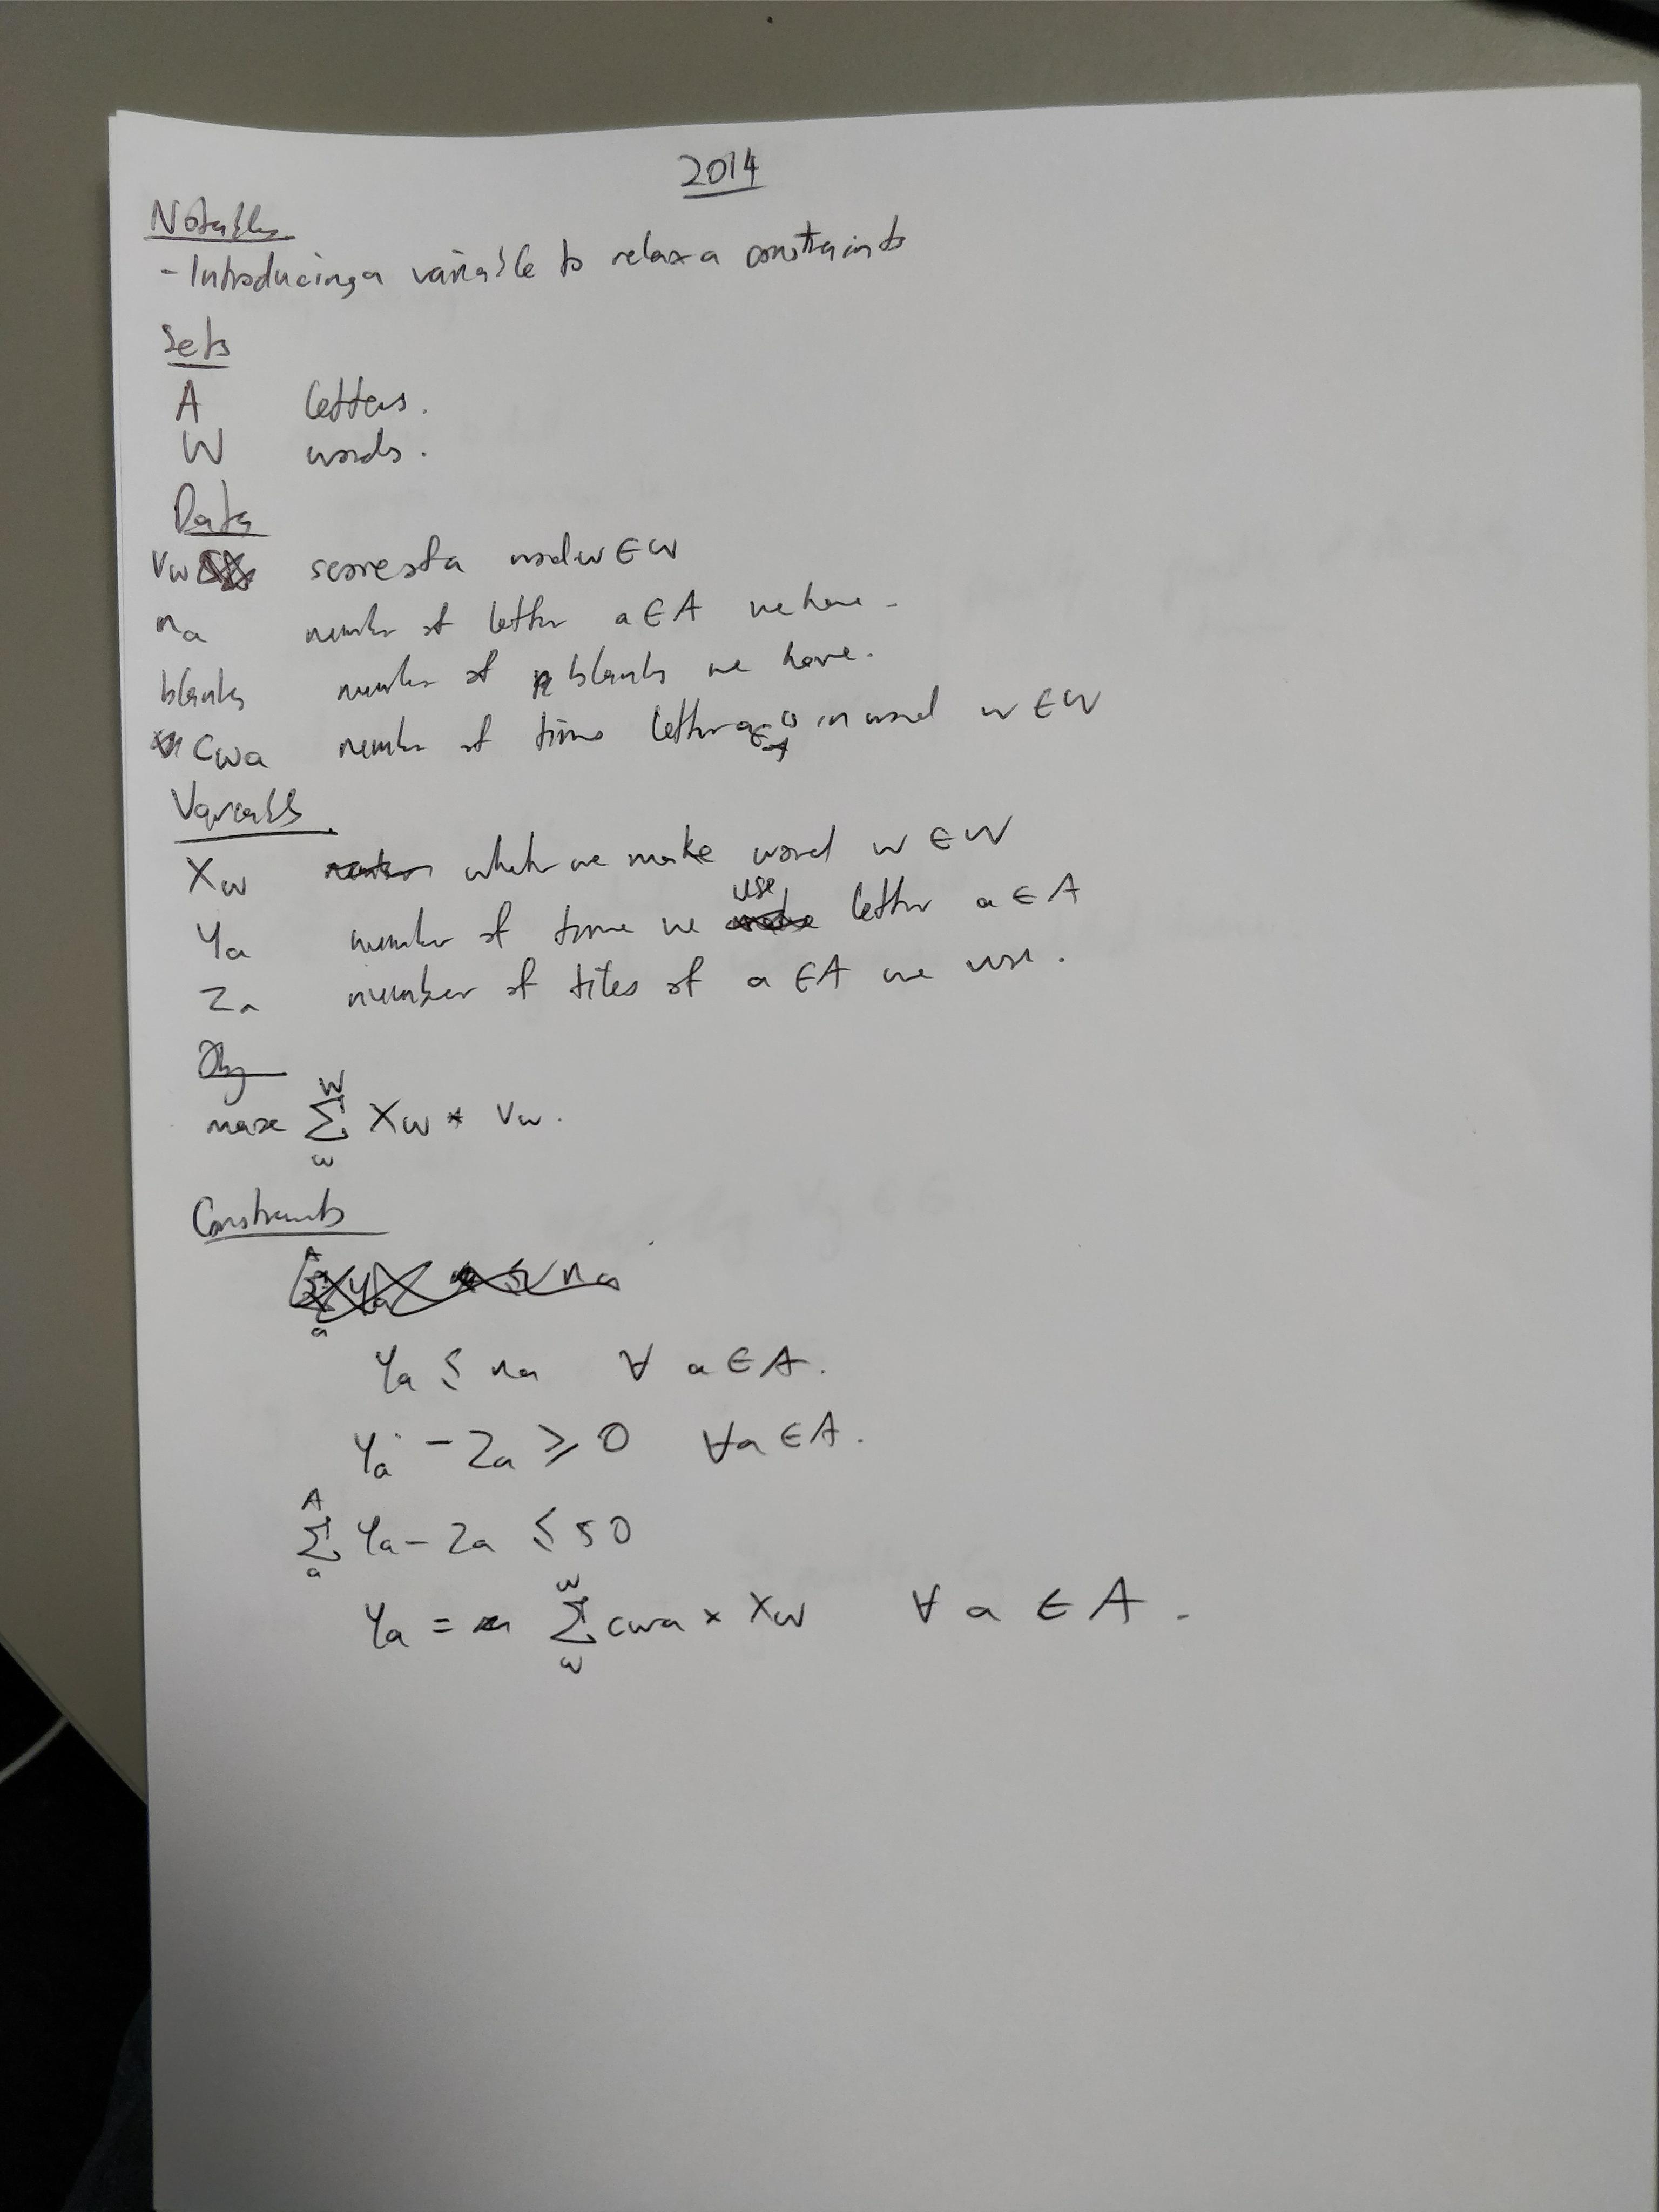 2014
Notables
- Introducing a variable to relax a constraints
Sets
A letters.
W words.
Data
Vw score of a word w ∈ W
na number of letter a ∈ A we have.
blanks number of blanks we have.
Cwa number of time letter a ∈ A in word w ∈ W
Variables
Xw whether we make word w ∈ W
Ya number of time we use letter a ∈ A
Za number of tiles of a ∈ A we use.
Obj
max W Σ w Xw * Vw.
Constraints
Ya ≤ na ∀ a ∈ A.
Ya - Za ≥ 0 ∀a ∈ A.
A Σ a Ya - Za ≤ 50
Ya = W Σ w Cwa × Xw ∀ a ∈ A.